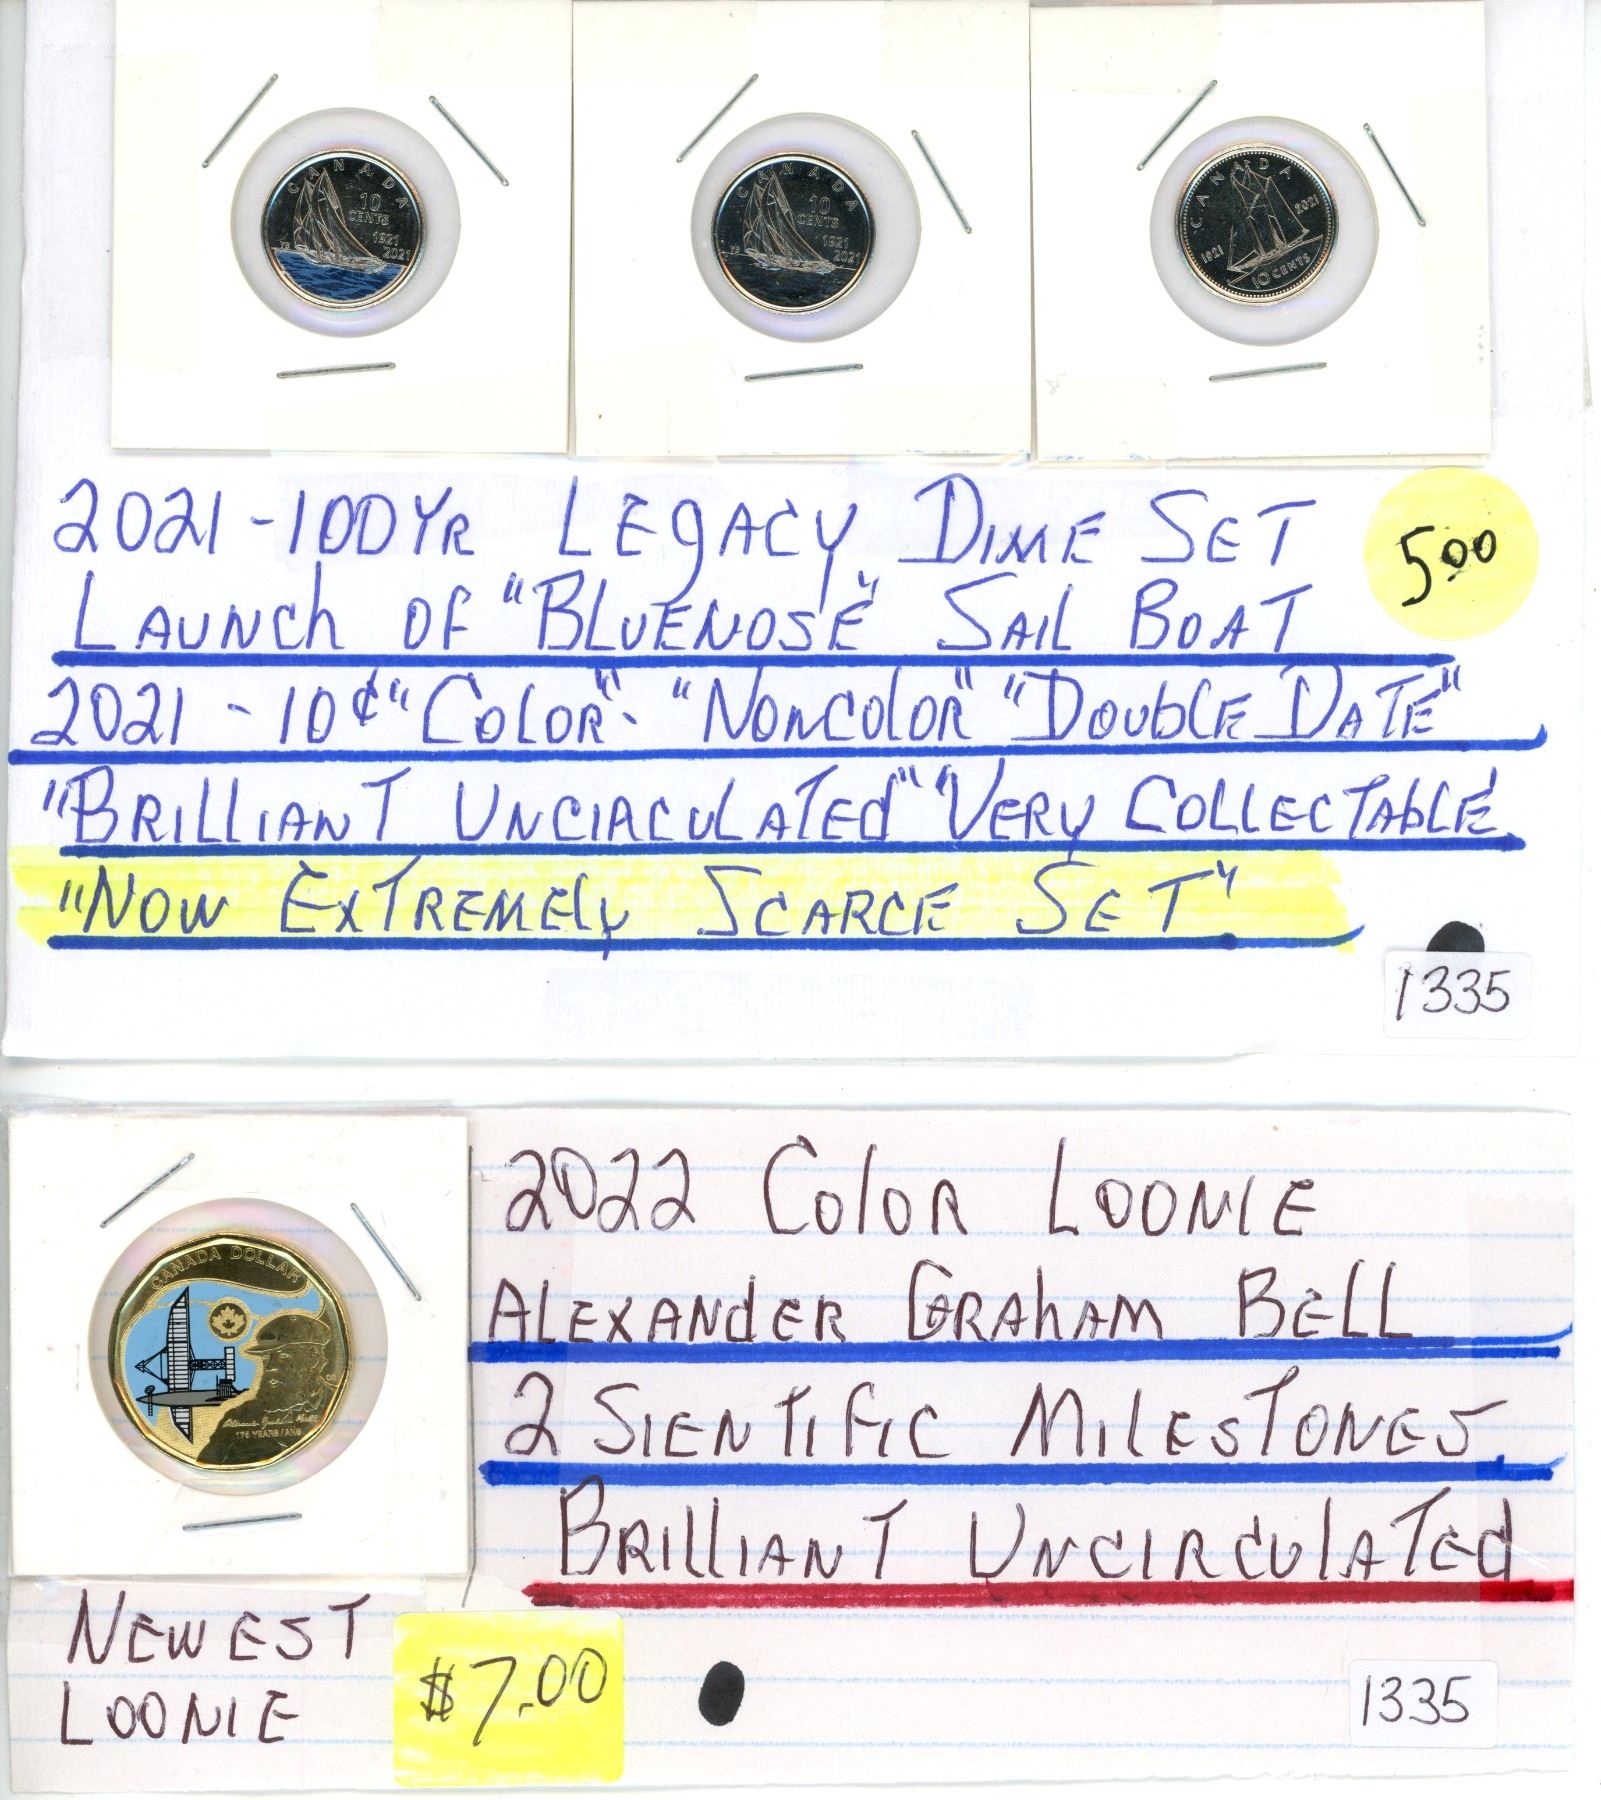 CANADA
10
CENTS
1921
2021
CANADA
10
CENTS
1921
2021
CANADA
1921
2021
10 CENTS
2021 - 100 YR LEGACY DIME SET
5.00
LAUNCH OF "BLUENOSE" SAIL BOAT
2021 - 10¢ "COLOR" - "NONCOLOR" "DOUBLE DATE"
"BRILLIANT UNCIRCULATED" "VERY COLLECTABLE
"NOW EXTREMELY SCARCE SET"
1335
CANADA DOLLAR
175 YEARS / ANS
2022 COLOR LOONIE
ALEXANDER GRAHAM BELL
2 SIENTIFIC MILESTONES
BRILLIANT UNCIRCULATED
NEWEST
LOONIE
$7.00
1335